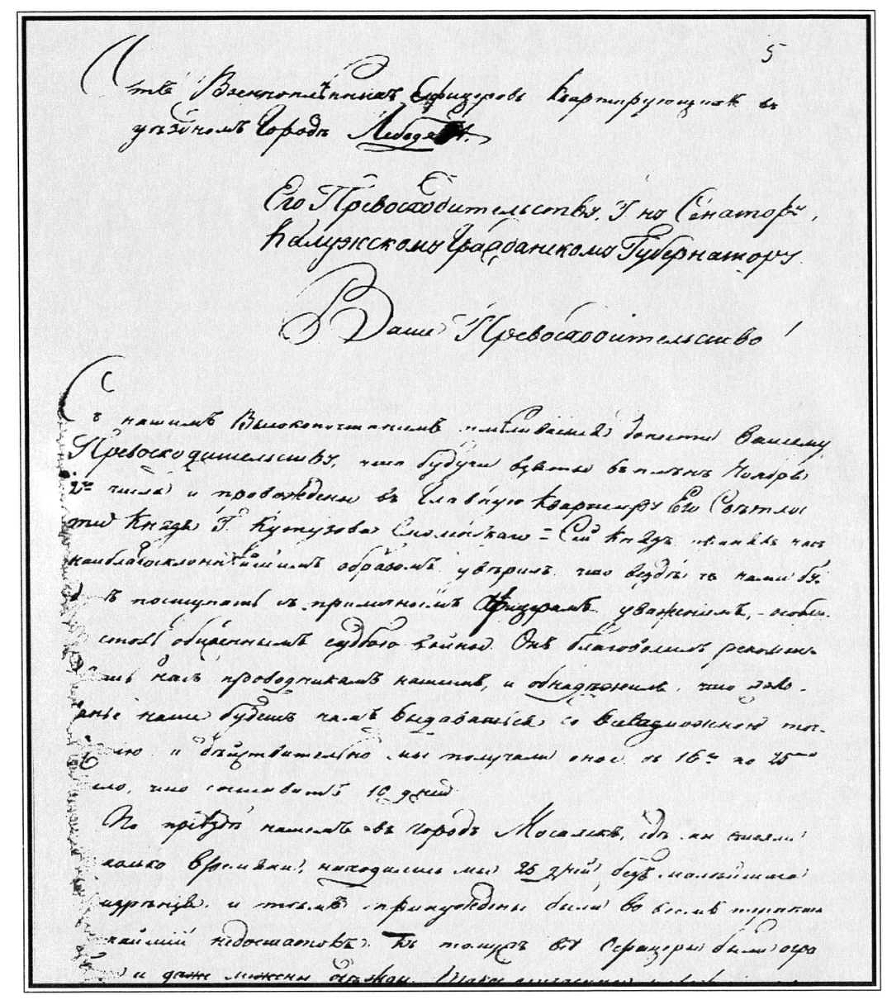 5
Отъ Военноплѣнныхъ Офицеровъ квартирующихъ въ
уѣздномъ Городѣ
Его Превосходительству, Г-ну Сенатору,
Калужскому Гражданскому Губернатору
Ваше Превосходительство!
Съ нашимъ Высокопочитаніемъ донести Вашему
Превосходительству, что будучи взяты въ плѣнъ Ноября
2го числа и провождены въ Главную Квартиру Его Свѣтло
сти Князя Г. Кутузова Смоленскаго = Сей Князь насъ
наиблагосклоннѣйшимъ образомъ увѣрилъ, что вездѣ съ нами бу
поступать съ Офицерамъ уваженіемъ,
судьбою войною. Онъ благоволилъ рекомен
насъ проводникамъ нашимъ, и обнадѣжилъ, что жало
нье наше будетъ намъ выдаваться со всевозможною точ
ію и дѣйствительно мы получали оное съ 16го по 25
ло, что составитъ 10 дней
По пріѣздѣ нашемъ въ городъ Мосальскъ, гдѣ
времяни, находились мы 25 дней безъ малѣйшаго
и тѣмъ принуждены были во всемъ терпѣть
недостатокъ. Офицеры были огра
и даже лишены одежды.